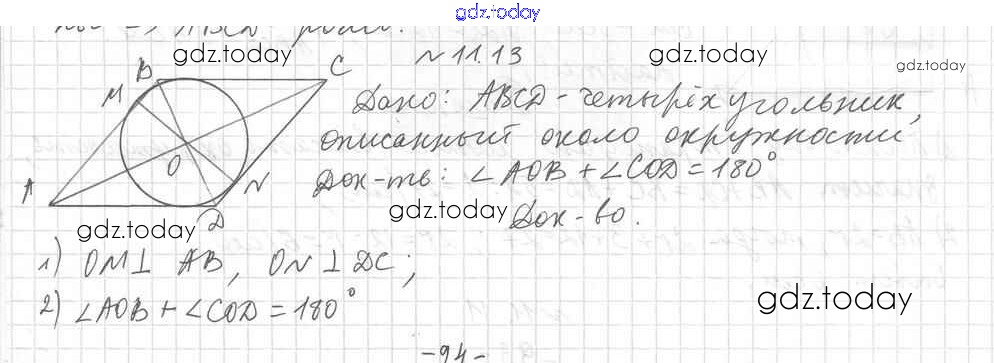 gdz.today
=> ABCD
gdz.today
№ 11.13
gdz.today
gdz.today
B
C
M
Дано: ABCD - четырёхугольник,
описанный около окружности
O
A
N
Док-ть: ∠AOB + ∠COD = 180°
D
gdz.today
gdz.today
Док-во.
1) OM ⊥ AB, ON ⊥ DC;
2) ∠AOB + ∠COD = 180°
gdz.today
-94-